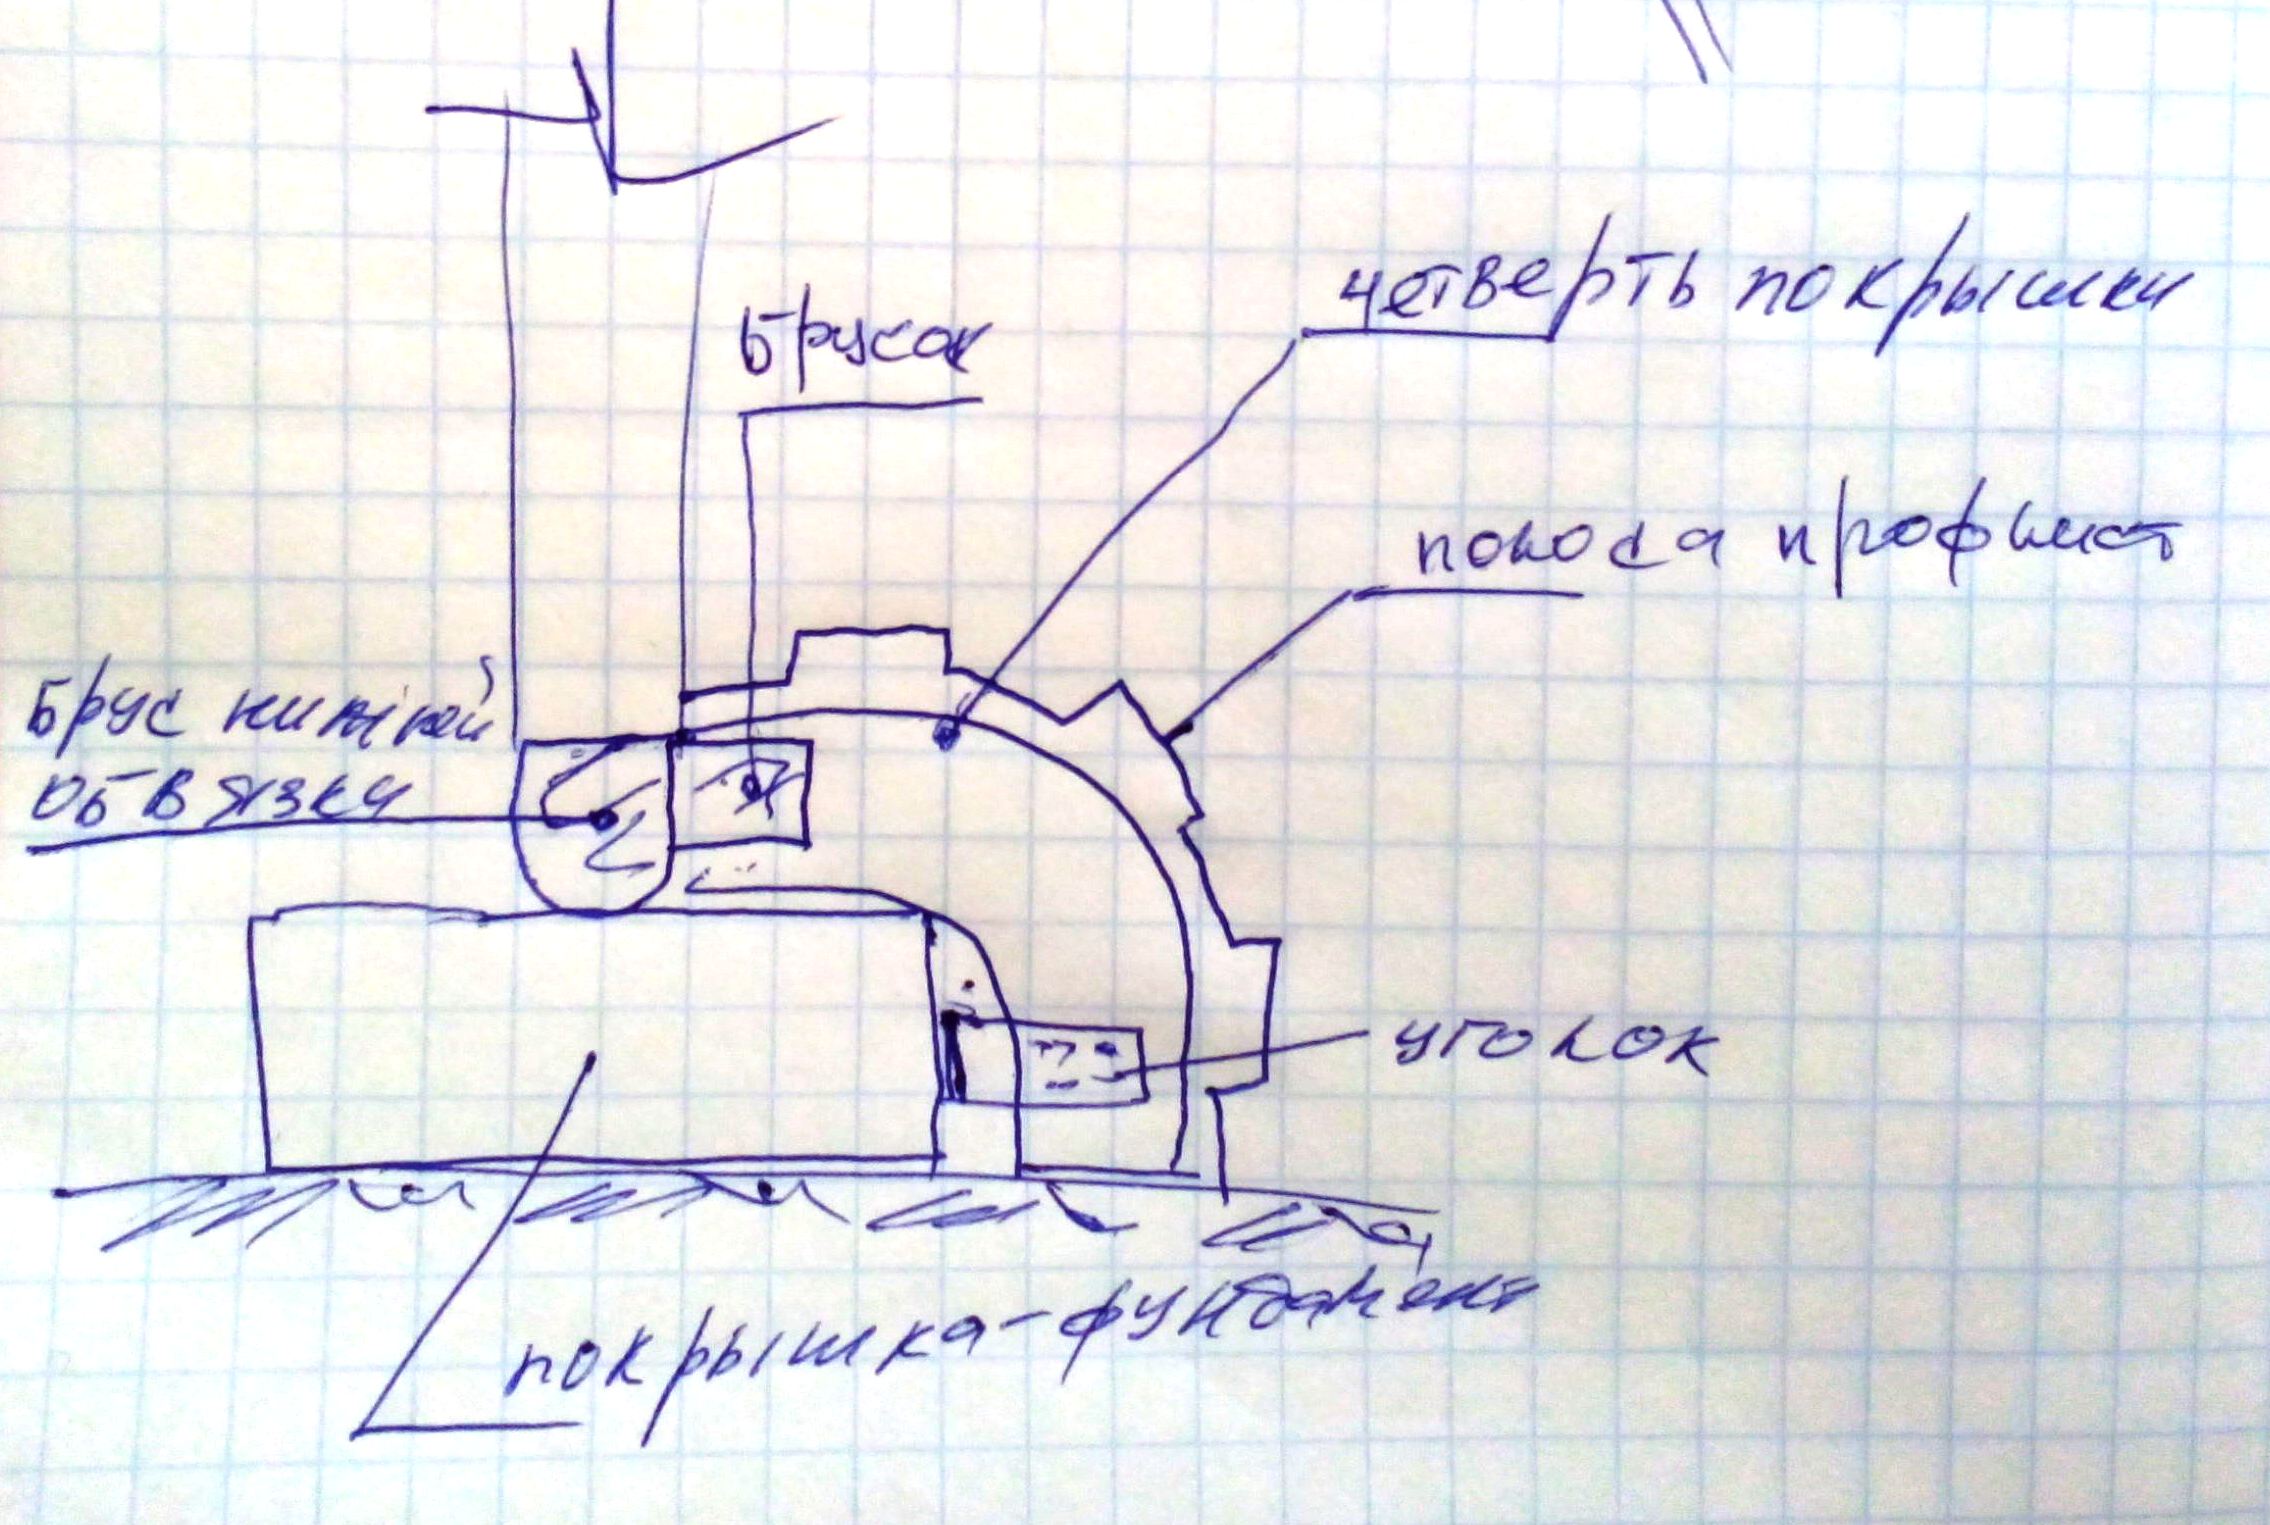 четверть покрышки
брусок
полоса профлист
Брус нижней
обвязки
уголок
покрышка-фундамент